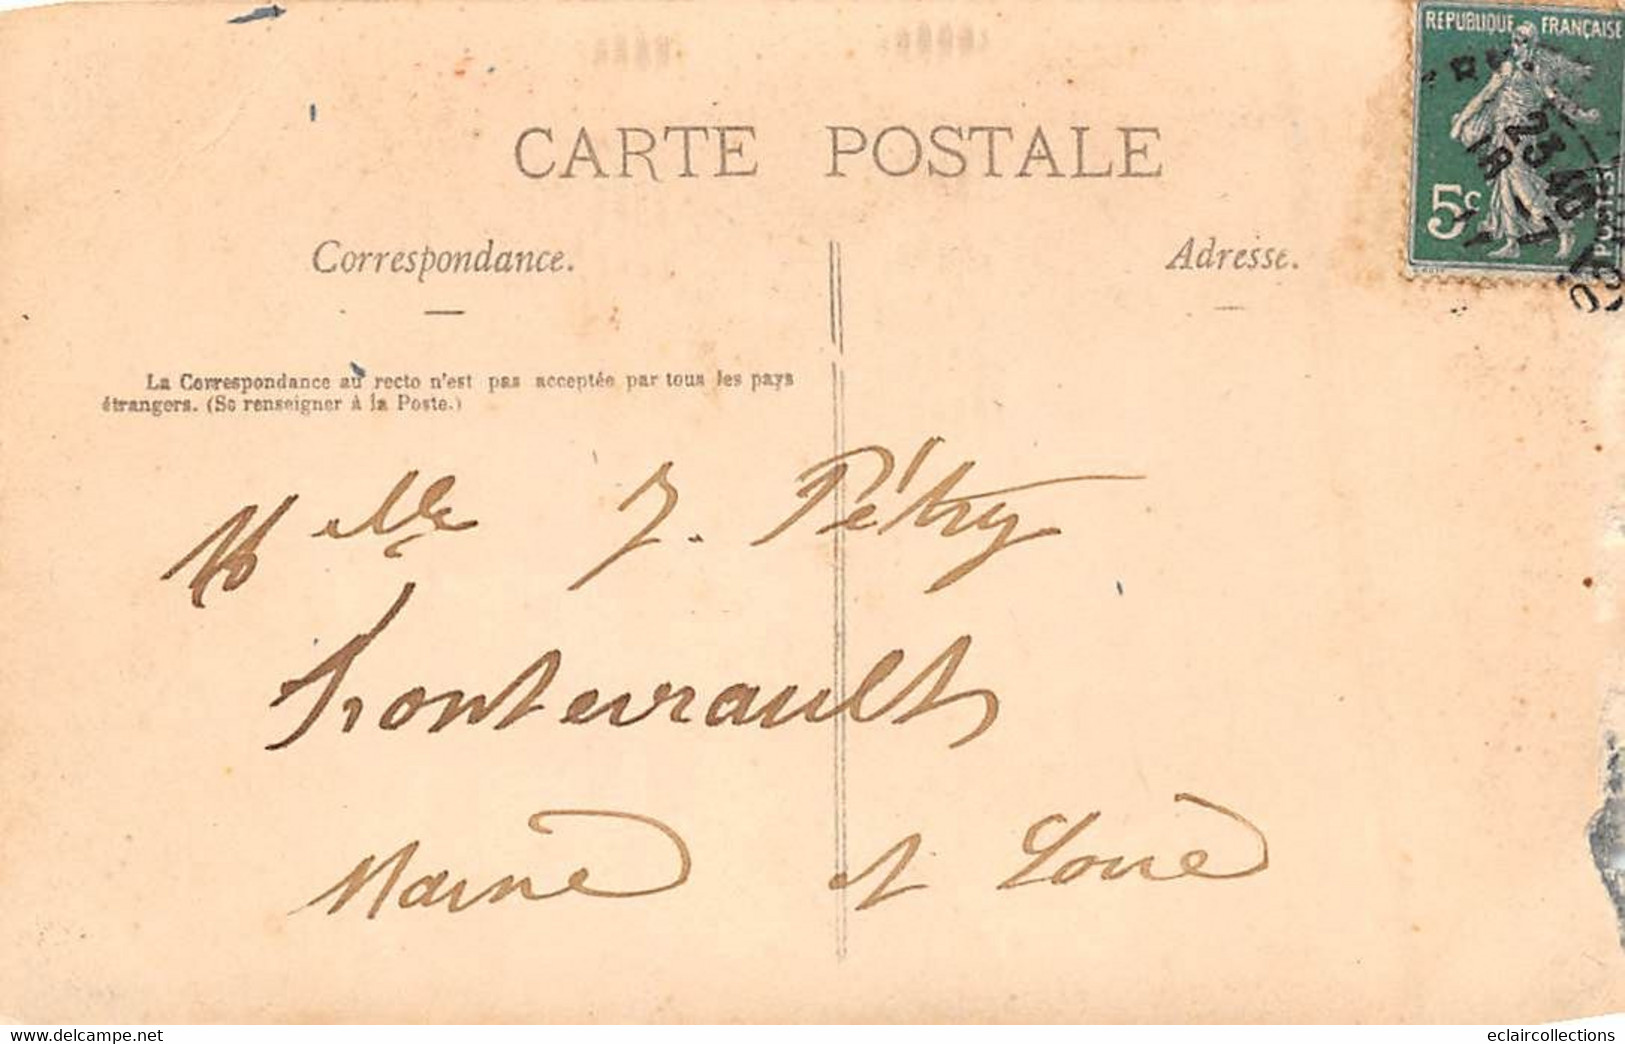 RÉPUBLIQUE FRANÇAISE
23 40
18 -7
11
5c
POSTES
CARTE POSTALE
Correspondance.
Adresse.
La Correspondance au recto n'est pas acceptée par tous les pays
étrangers. (Se renseigner à la Poste.)
Melle J. Pétry
Frontevrault
Maine et Loire
www.delcampe.net
eclaircollections